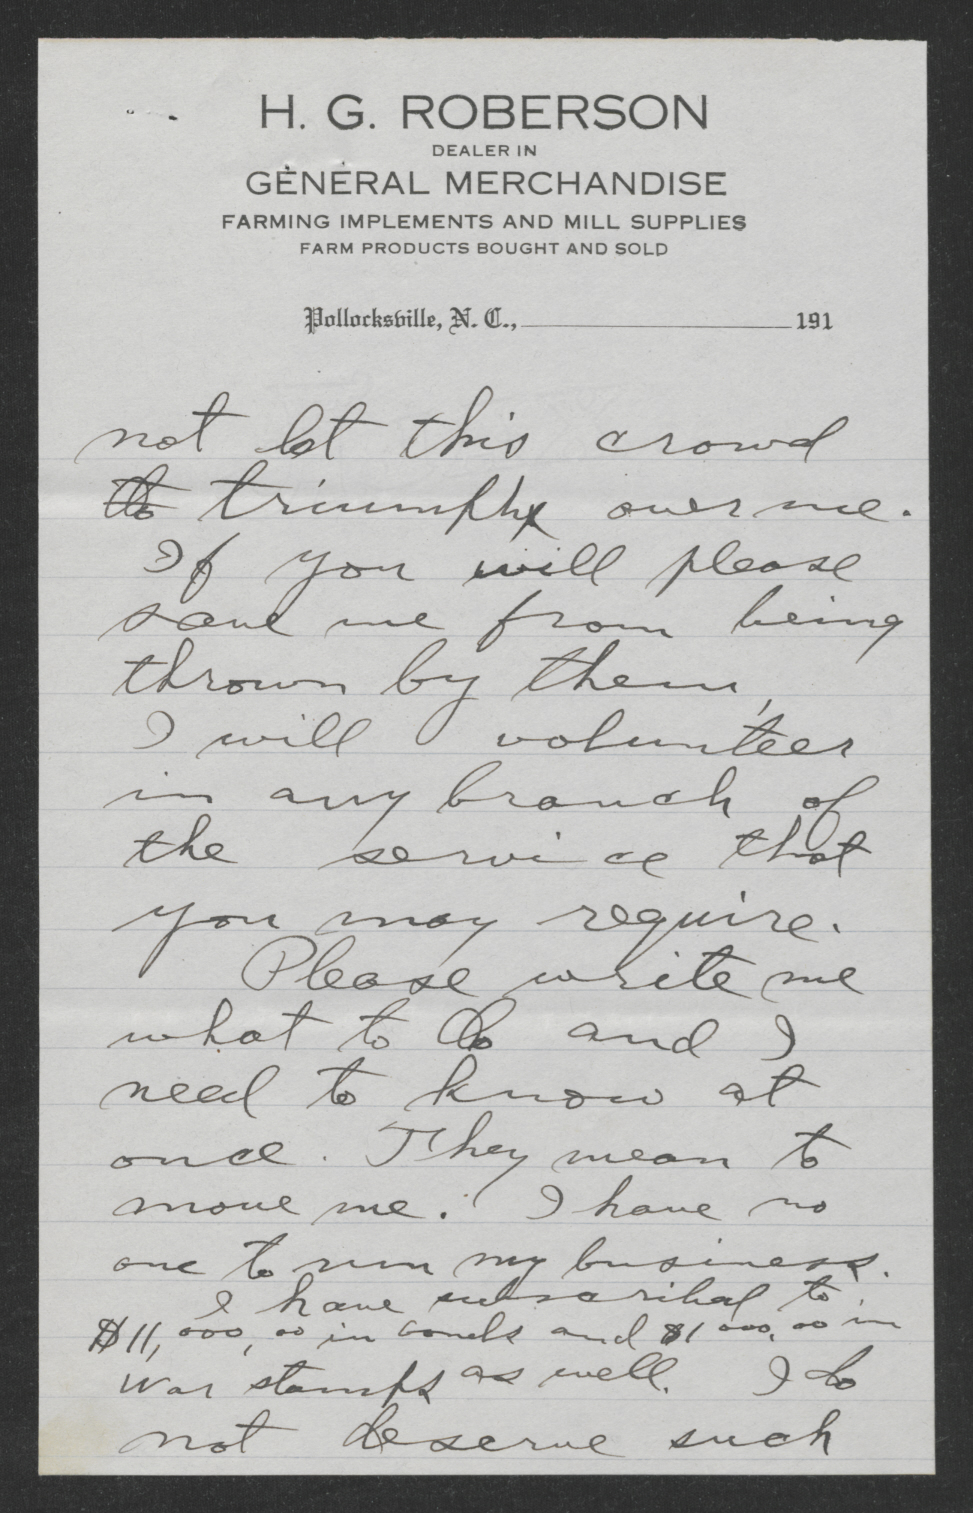 H. G. ROBERSON
DEALER IN
GENERAL MERCHANDISE
FARMING IMPLEMENTS AND MILL SUPPLIES
FARM PRODUCTS BOUGHT AND SOLD
Pollocksville, N. C., 191
not let this crowd
to triumph over me.
If you will please
save me from being
thrown by them,
I will volunteer
in any branch of
the service that
you may require.
Please write me
what to do and I
need to know at
once. They mean to
move me. I have no
one to run my business.
I have subscribed to
$11,000,00 in bonds and $1000.00 in
war stamps as well. I do
not deserve such